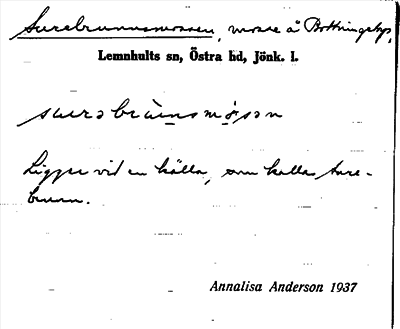 Surebrunnsmossen, mosse å Bottningebys,
Lemnhults sn, Östra hd, Jönk. l.
surəbrùnsmòsən
Ligger vid en källa, som kallas Sure-
brunn.
Annalisa Anderson 1937